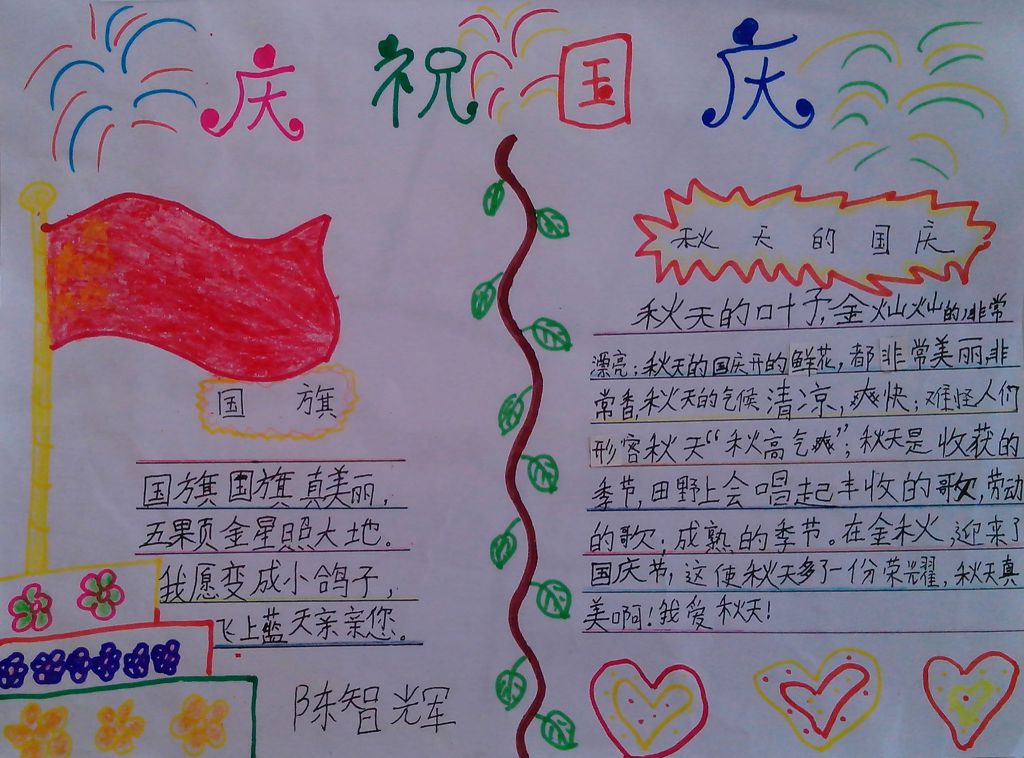 庆祝国庆
国旗
国旗国旗真美丽，
五果页金星照大地。
我愿变成小鸽子，
飞上蓝天亲亲您。
陈智辉
秋天的国庆
秋天的叶子，金灿灿的，非常
漂亮；秋天的国庆开的鲜花，都非常美丽，非
常香，秋天的气候清凉，爽快；难怪人们
形容秋天“秋高气爽”；秋天是收获的
季节，田野上会唱起丰收的歌，劳动
的歌；成熟的季节。在金秋，迎来了
国庆节，这使秋天多了一份荣耀，秋天真
美啊！我爱秋天！